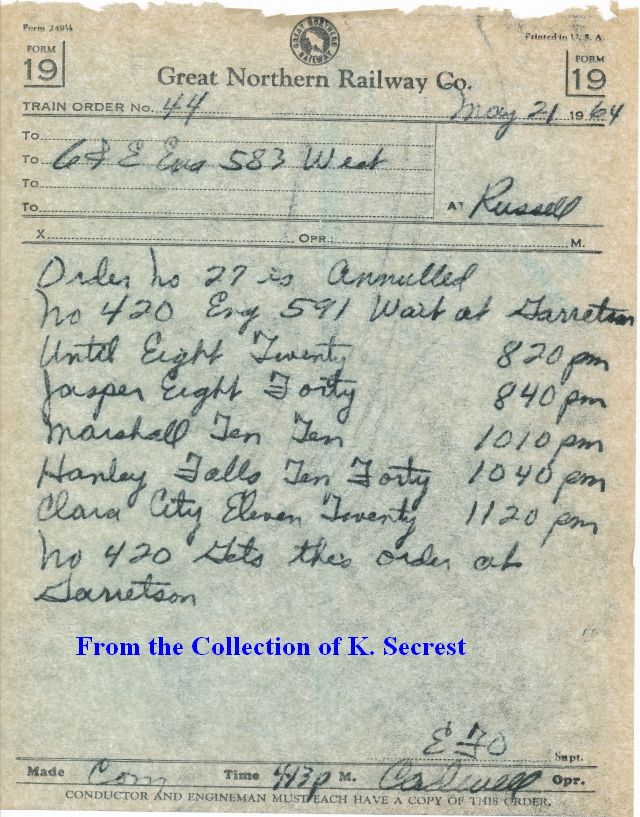 Form 249¼
Printed in U. S. A.
GREAT NORTHERN RAILWAY
FORM 19
FORM 19
Great Northern Railway Co.
TRAIN ORDER No. 44 May 21 1964
To
To C & E Eng 583 West
To
To AT Russell
X OPR.: M.
Order No 27 is Annulled
No 420 Eng 591 Wait at Garretson
Until Eight Twenty 820 pm
Jasper Eight Forty 840 pm
Marshall Ten Ten 1010 pm
Hanley Falls Ten Forty 1040 pm
Clara City Eleven Twenty 1120 pm
No 420 Gets this order at
Garretson
From the Collection of K. Secrest
Supt.
Made Com Time 413p M. Opr.
CONDUCTOR AND ENGINEMAN MUST EACH HAVE A COPY OF THIS ORDER.